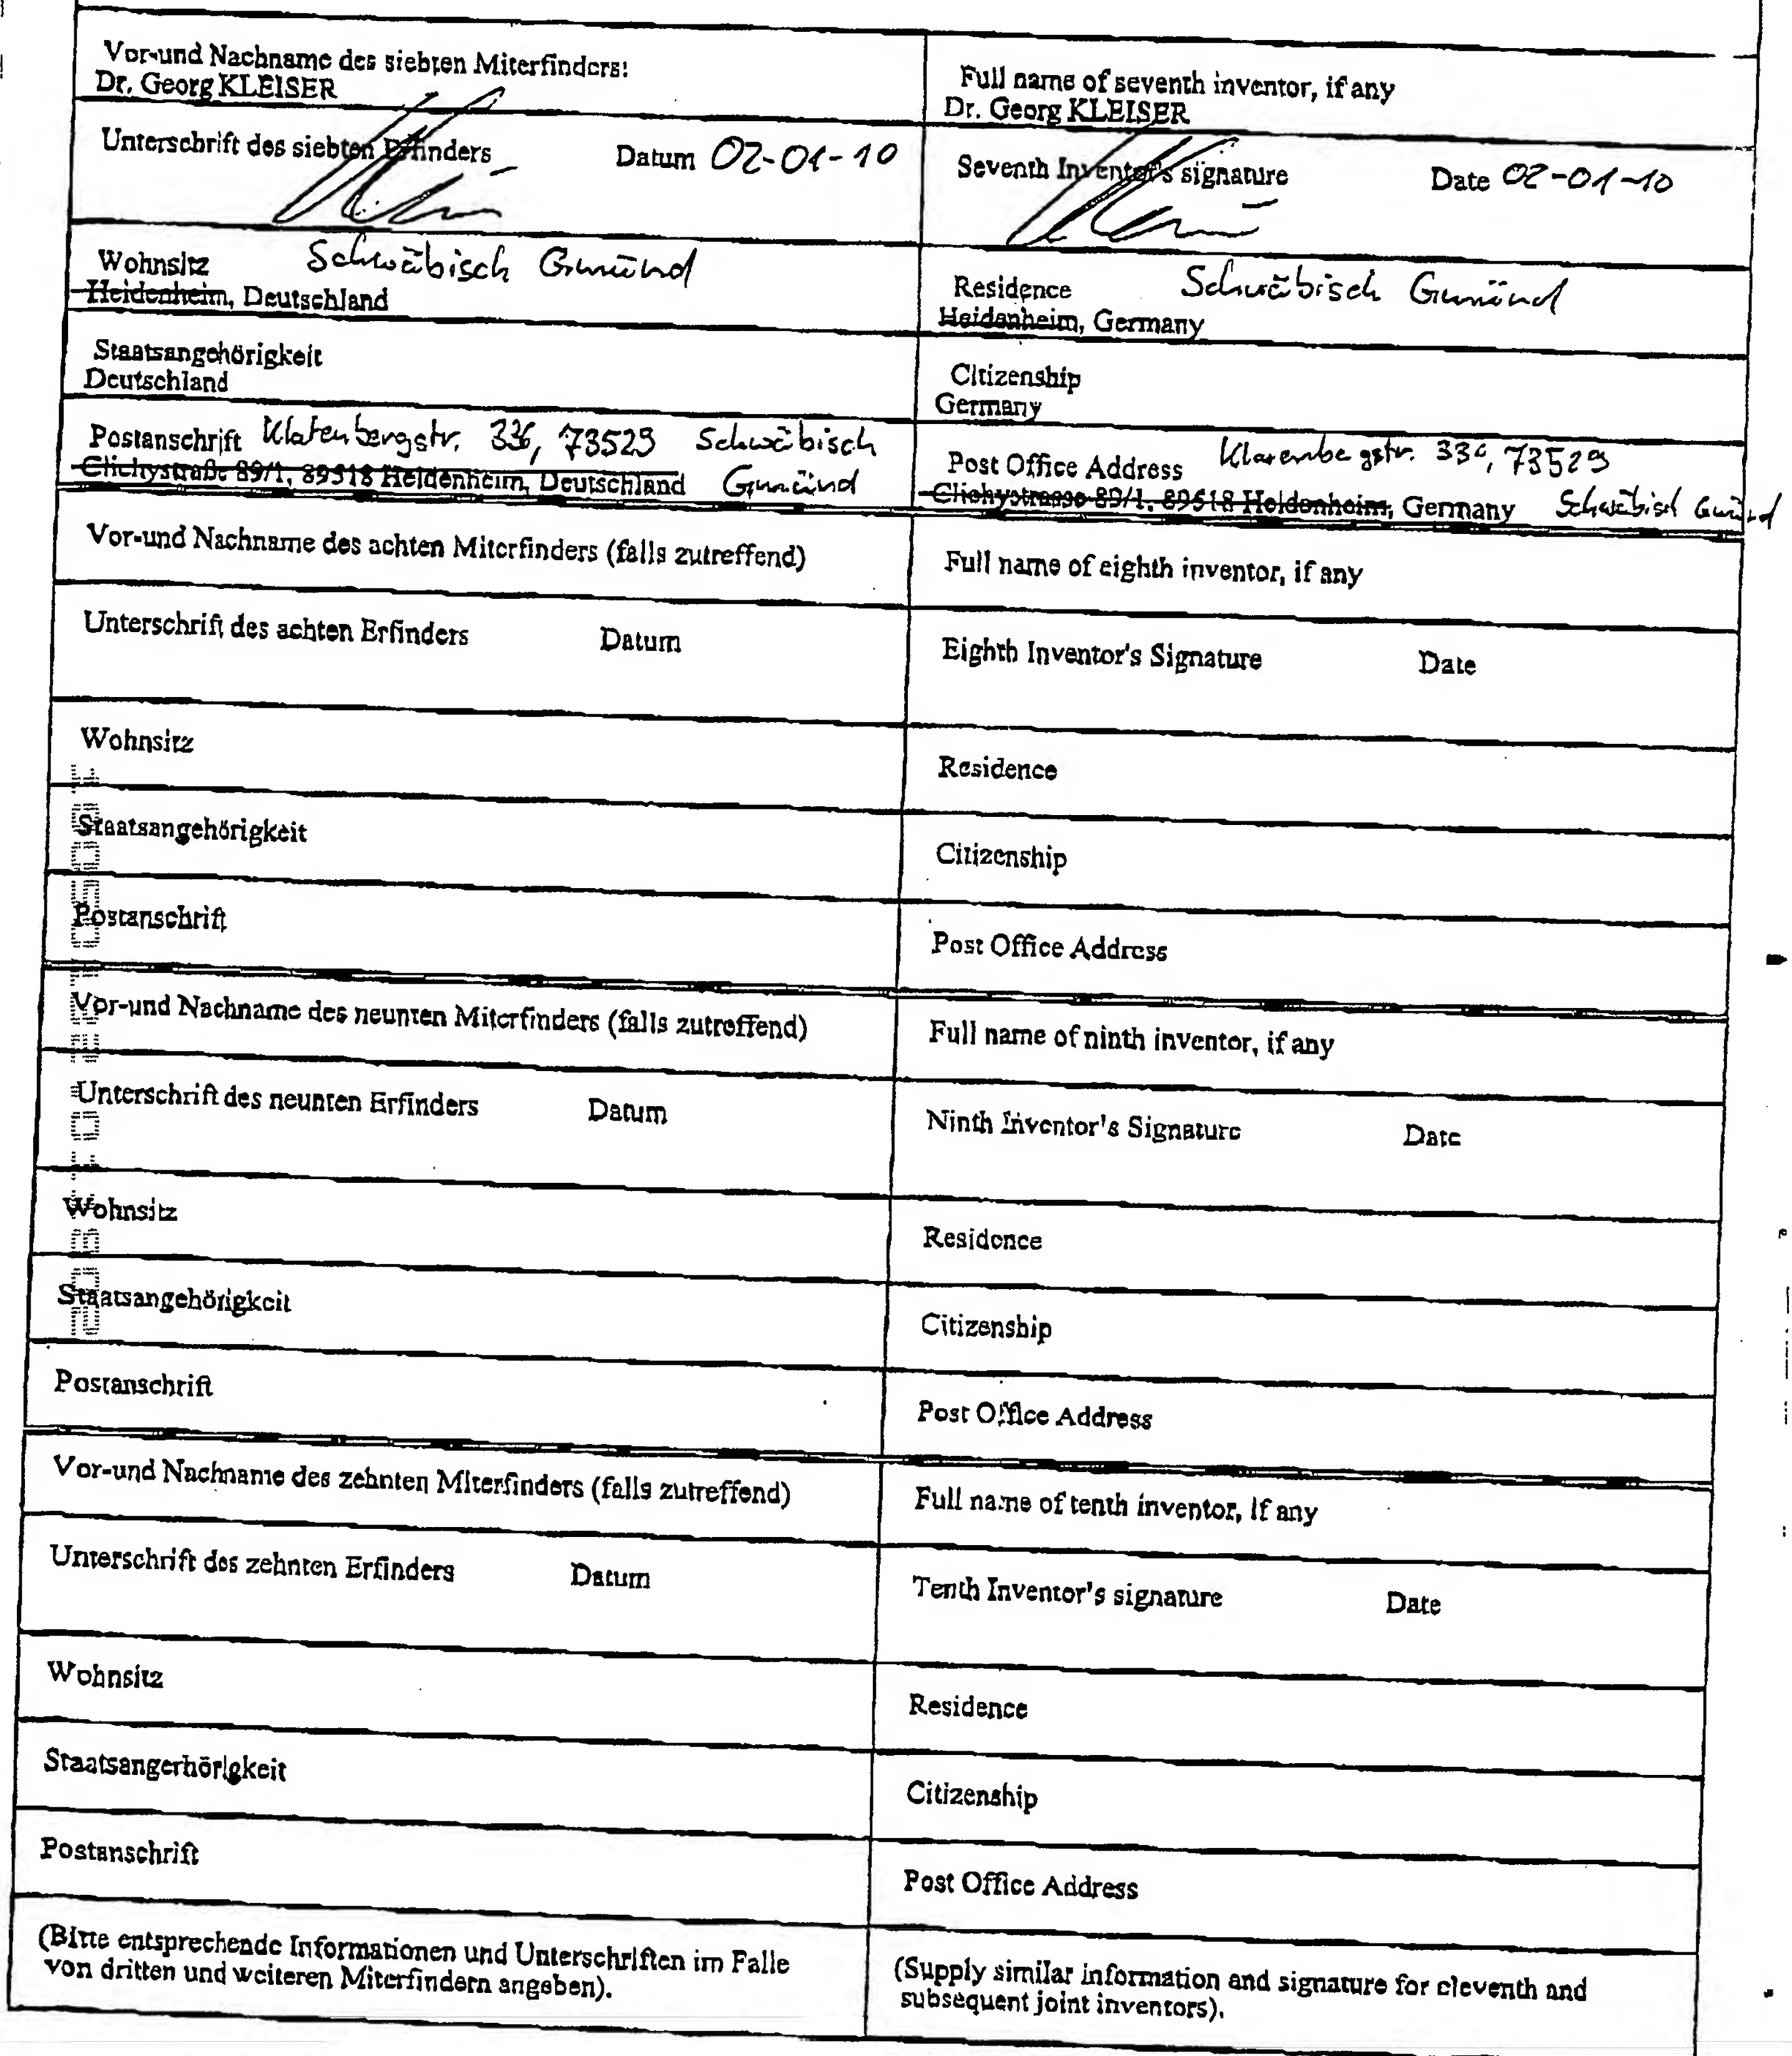 Vor-und Nachname des siebten Miterfinders:
Dr. Georg KLEISER
Full name of seventh inventor, if any
Dr. Georg KLEISER
Unterschrift des siebten Erfinders Datum 02-01-10
Seventh Inventor's signature Date 02-01-10
Wohnsitz Schwäbisch Gmünd
Heidenheim, Deutschland
Residence Schwäbisch Gmünd
Heidenheim, Germany
Staatsangehörigkeit
Deutschland
Citizenship
Germany
Postanschrift 73529 Schwäbisch
Clichystraße 89/1, 89518 Heidenheim, Deutschland Gmünd
Post Office Address 73529
Clichystrasse 89/1, 89518 Heidenheim, Germany Schwäbisch Gmünd
Vor-und Nachname des achten Miterfinders (falls zutreffend)
Full name of eighth inventor, if any
Unterschrift des achten Erfinders Datum
Eighth Inventor's Signature Date
Wohnsitz
Residence
Staatsangehörigkeit
Citizenship
Postanschrift
Post Office Address
Vor-und Nachname des neunten Miterfinders (falls zutreffend)
Full name of ninth inventor, if any
Unterschrift des neunten Erfinders Datum
Ninth Inventor's Signature Date
Wohnsitz
Residence
Staatsangehörigkeit
Citizenship
Postanschrift
Post Office Address
Vor-und Nachname des zehnten Miterfinders (falls zutreffend)
Full name of tenth inventor, if any
Unterschrift des zehnten Erfinders Datum
Tenth Inventor's signature Date
Wohnsitz
Residence
Staatsangerhörigkeit
Citizenship
Postanschrift
Post Office Address
(Bitte entsprechende Informationen und Unterschriften im Falle
von dritten und weiteren Miterfindern angeben).
(Supply similar information and signature for eleventh and
subsequent joint inventors).